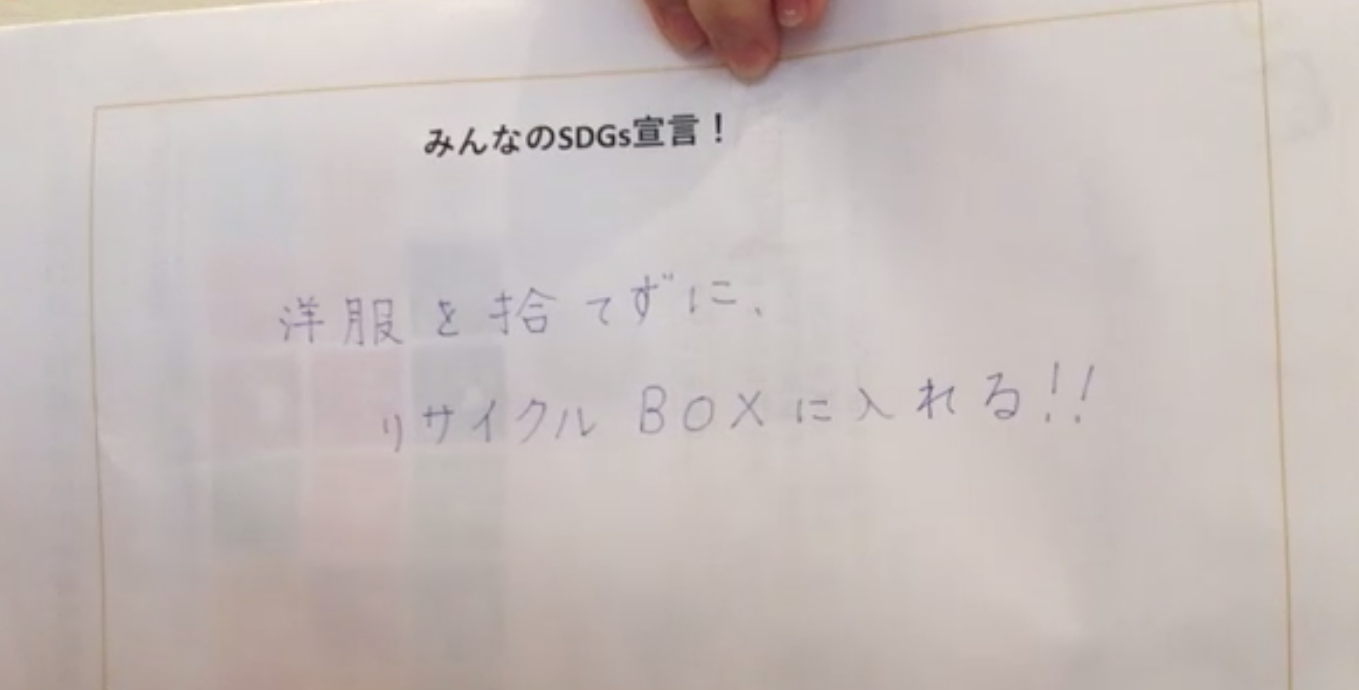 みんなのSDGs宣言！
洋服を拾てずに、
リサイクルBOXに入れる!!